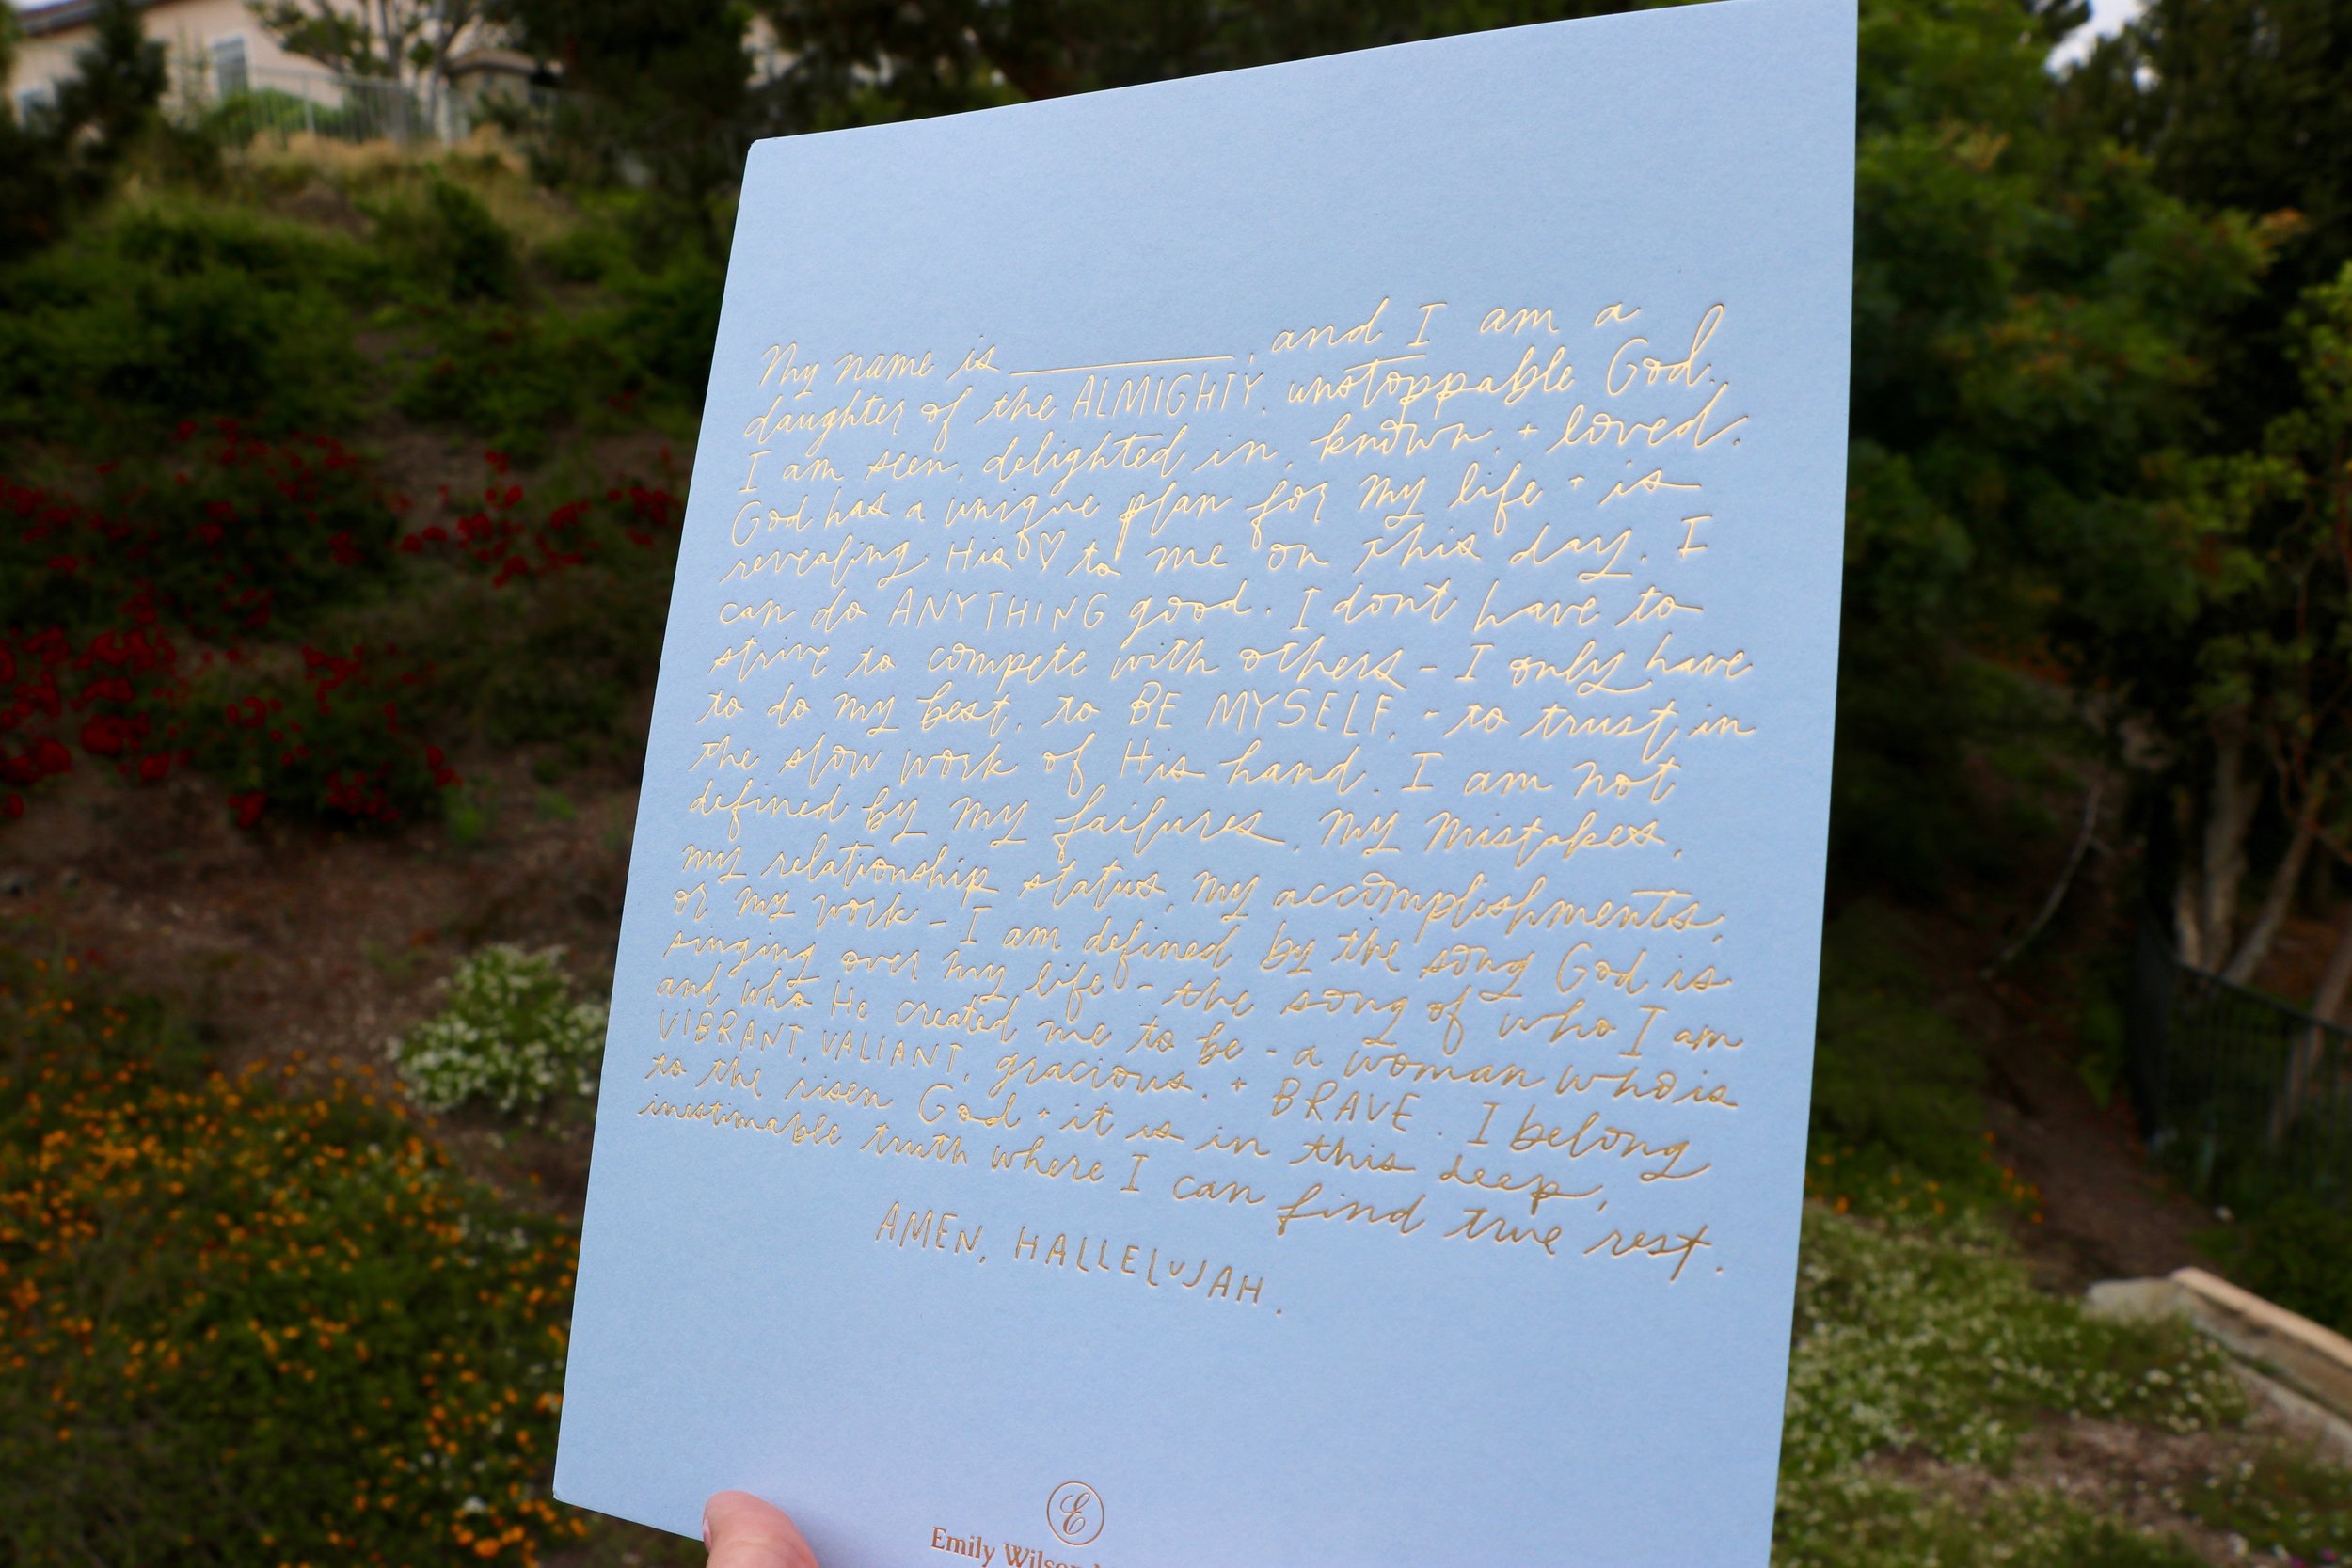 My name is __________, and I am a
daughter of the ALMIGHTY, unstoppable God.
I am seen, delighted in, known, + loved.
God has a unique plan for my life + is
revealing His ♡ to me on this day. I
can do ANYTHING good. I dont have to
strive to compete with others - I only have
to do my best, to BE MYSELF, + to trust in
the slow work of His hand. I am not
defined by my failures, my mistakes,
my relationship status, my accomplishments,
or my work - I am defined by the song God is
singing over my life - the song of who I am
and who He created me to be - a woman who is
VIBRANT, VALIANT, gracious, + BRAVE. I belong
to the risen God + it is in this deep,
inestimable truth where I can find true rest.
AMEN, HALLELUJAH.
E
Emily Wilson